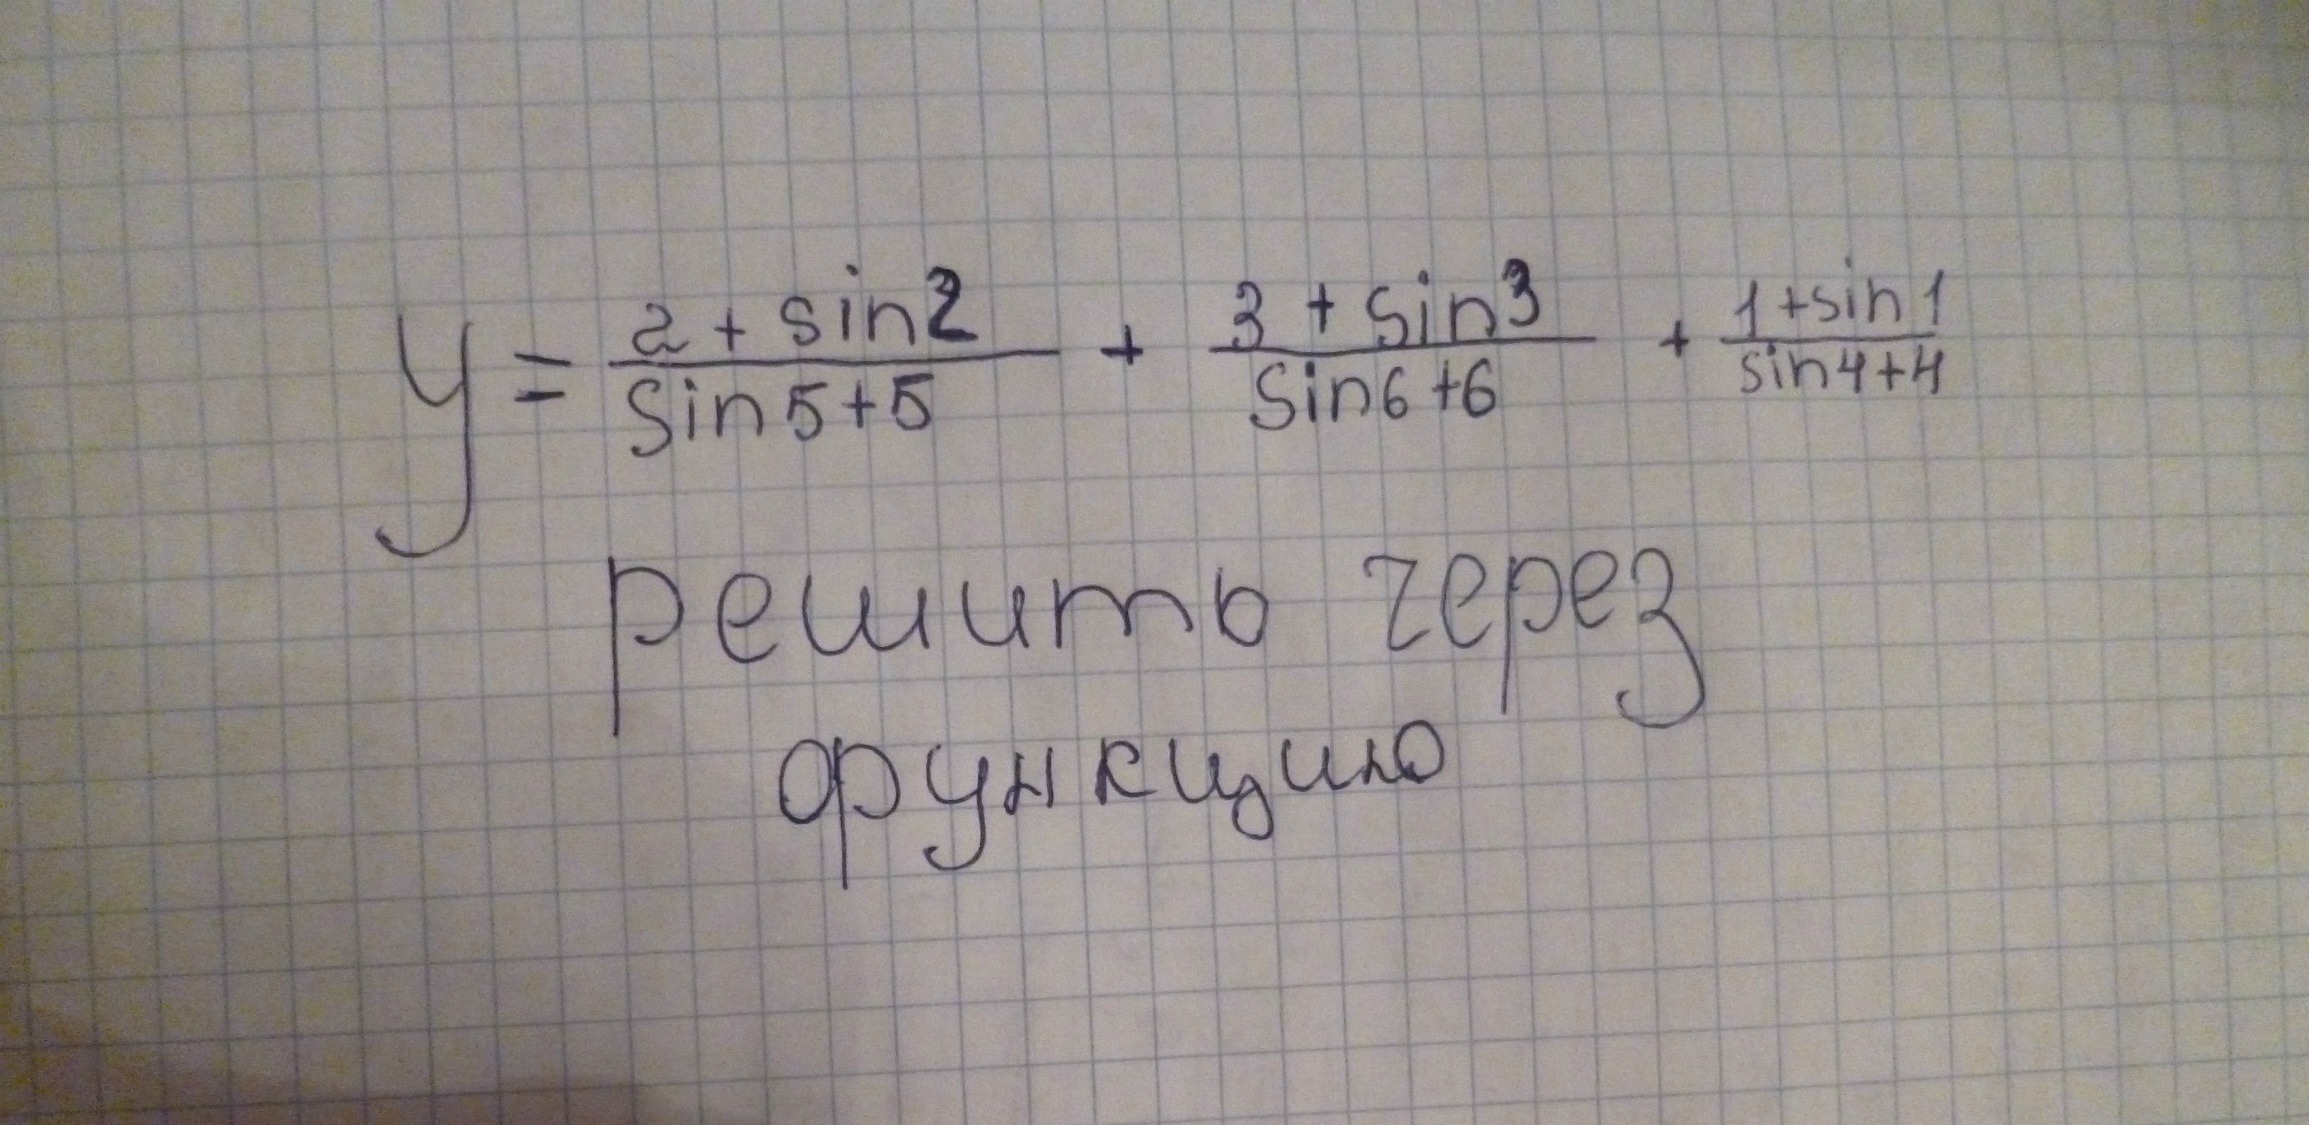 y = (2 + sin2)/(sin5+5) + (3 + sin3)/(sin6+6) + (1+sin1)/(sin4+4)
решить через
функцию